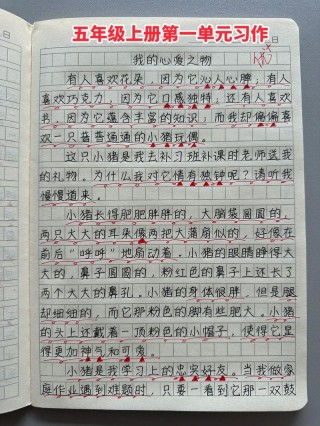 五年级上册第一单元习作
优
日
日
我的心爱之物
有人喜欢花朵，因为它沁人心脾；有人
喜欢巧克力，因为它口感独特；还有人喜欢
书，因为它蕴含丰富的知识；而我却偏偏喜
欢一只普普通通的小猪玩偶。
这只小猪是我去补习班补课时老师送我
的礼物，为什么我对它情有独钟呢？请听我
慢慢道来。
小猪长得肥肥胖胖的，大脑袋圆圆的，
两只大大的耳朵像两把大蒲扇似的，好像在
前后“呼呼”地扇动着。小猪的眼睛睁得大
大的，鼻子圆圆的，粉红色的鼻子上还长了
两个大大的鼻孔。小猪的身体很胖，但是腿
却细细的，而它那粉色的脚有些肥大。小猪
的头上还戴着一顶粉色的小帽子，使得它显
得更加神气和可爱。
小猪是我学习上的忠实好友。当我做家
庭作业遇到难题时，只要一看到它那一双鼓